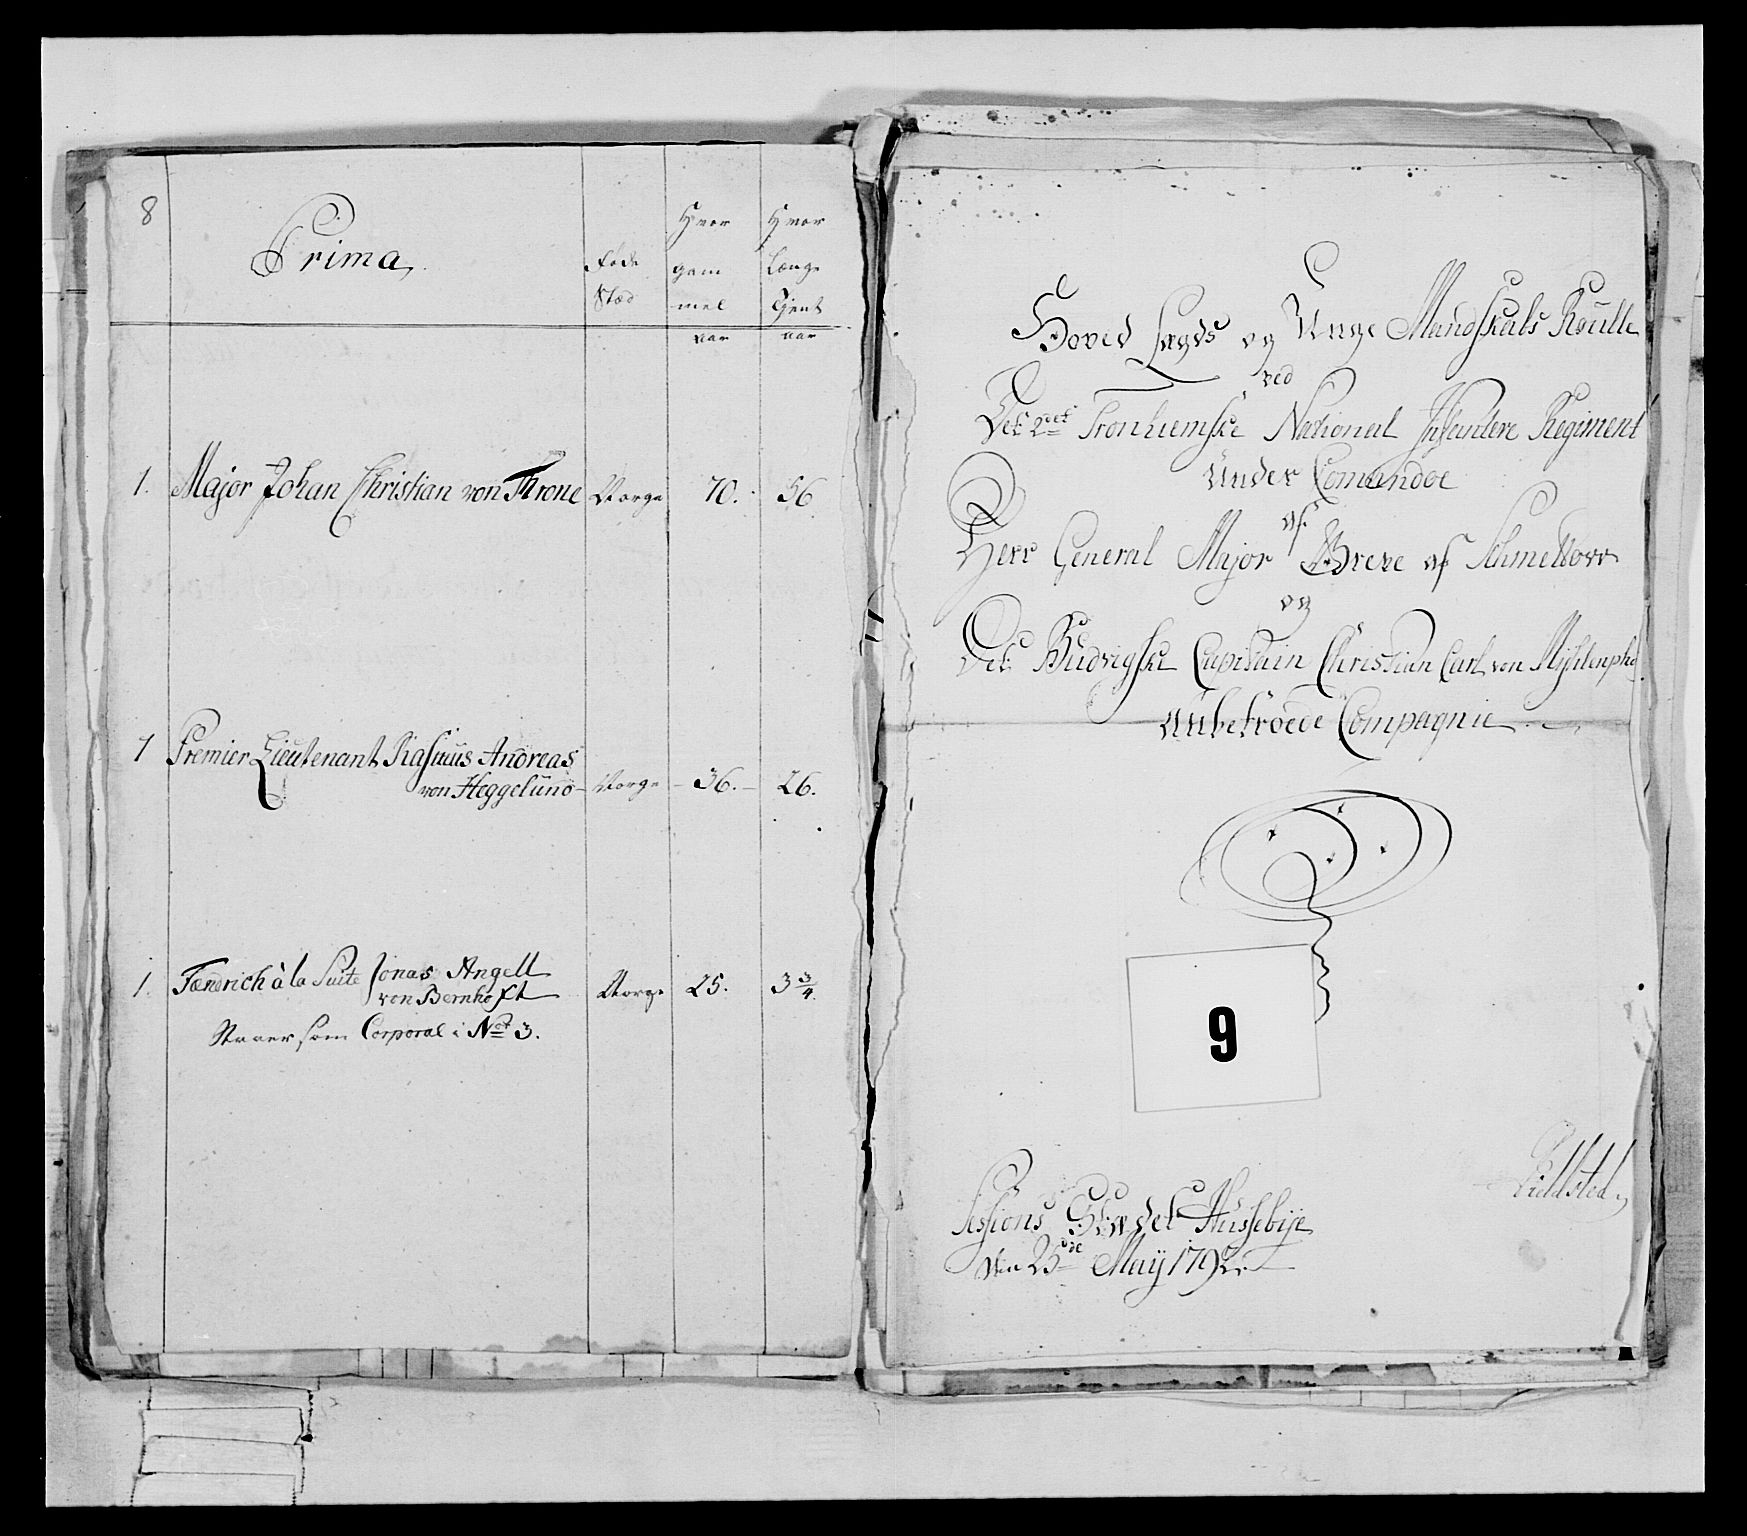 8
Prima
Føde
Stæd
Hvor
gam
mel
aar
Hvor
Længe
Tjent
aar
1. Major Johan Christian von Throne Norge 70. 56
1 Premier Lieutenant Rasmus Andreas
von Heggelund - Norge - 36. - 26.
1. Fændrich à la Suite Jonas Angell
von Bernhoft Norge 25. 3 3/4.
Staaer som Corporal i No 3.
Hoved Lægds og Unge Mandskabs Roulle
ved
Det 2det Tronhiemske National Infanterie Regiment
Under Comandoe
af
Herr General Major Greve af Schmettow
og
Det Budvigske Capitain Christian Carl von
Anbetroede Compagnie
9
Sessions Stædet Hussebye
den 25de Maij 1792